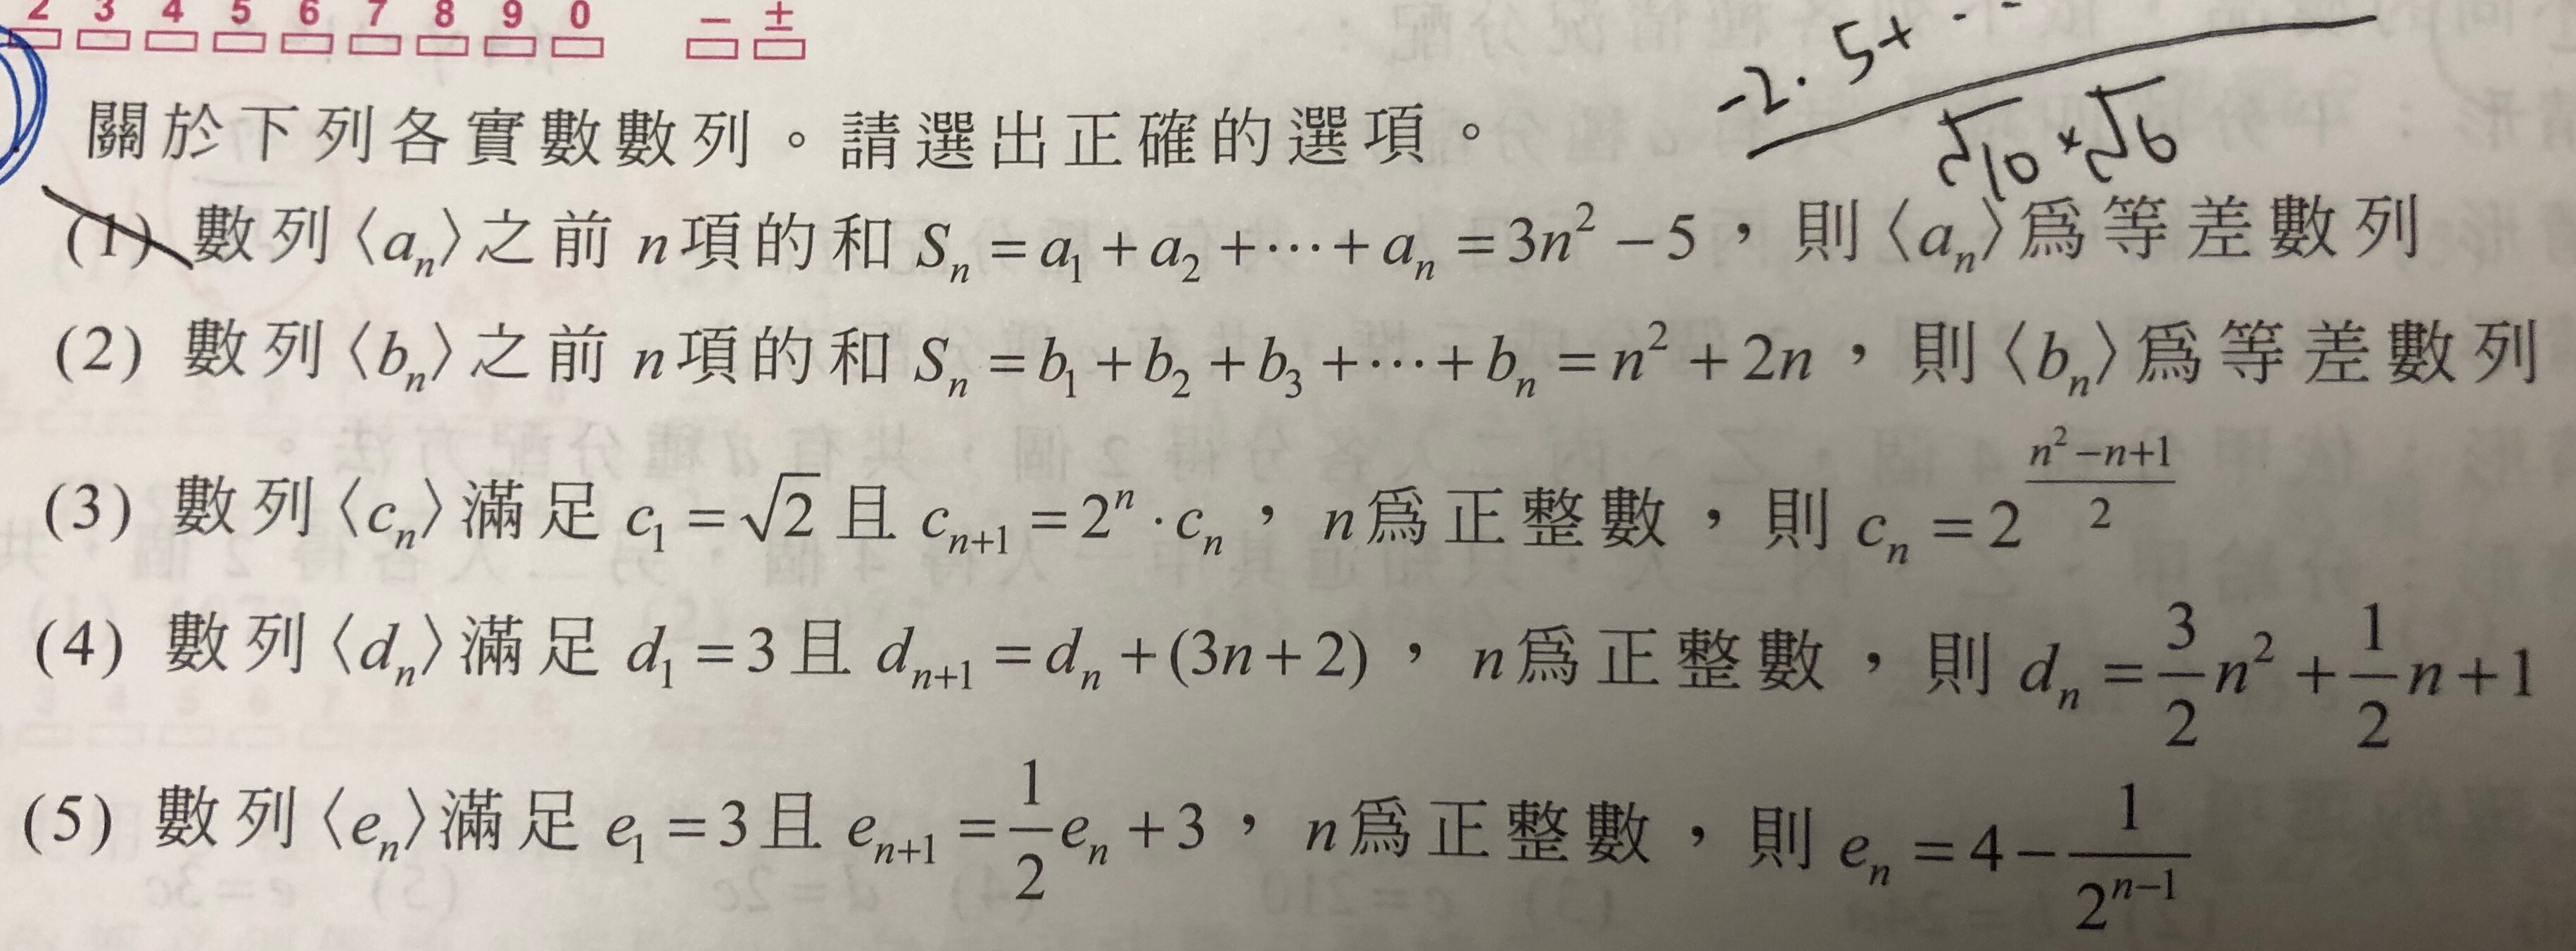 2 3 4 5 6 7 8 9 0 − ±
-2.5+ - -
√10 × √6
關於下列各實數數列。請選出正確的選項。
(1) 數列⟨aₙ⟩之前 n項的和 Sₙ = a₁ + a₂ + ⋯ + aₙ = 3n² − 5，則⟨aₙ⟩爲等差數列
(2) 數列⟨bₙ⟩之前 n項的和 Sₙ = b₁ + b₂ + b₃ + ⋯ + bₙ = n² + 2n，則⟨bₙ⟩爲等差數列
(3) 數列⟨cₙ⟩滿足 c₁ = √2 且 cₙ₊₁ = 2ⁿ · cₙ，n爲正整數，則 cₙ = 2^((n²−n+1)/2)
(4) 數列⟨dₙ⟩滿足 d₁ = 3且 dₙ₊₁ = dₙ + (3n + 2)，n爲正整數，則 dₙ = 3/2 n² + 1/2 n + 1
(5) 數列⟨eₙ⟩滿足 e₁ = 3且 eₙ₊₁ = 1/2 eₙ + 3，n爲正整數，則 eₙ = 4 − 1/2ⁿ⁻¹